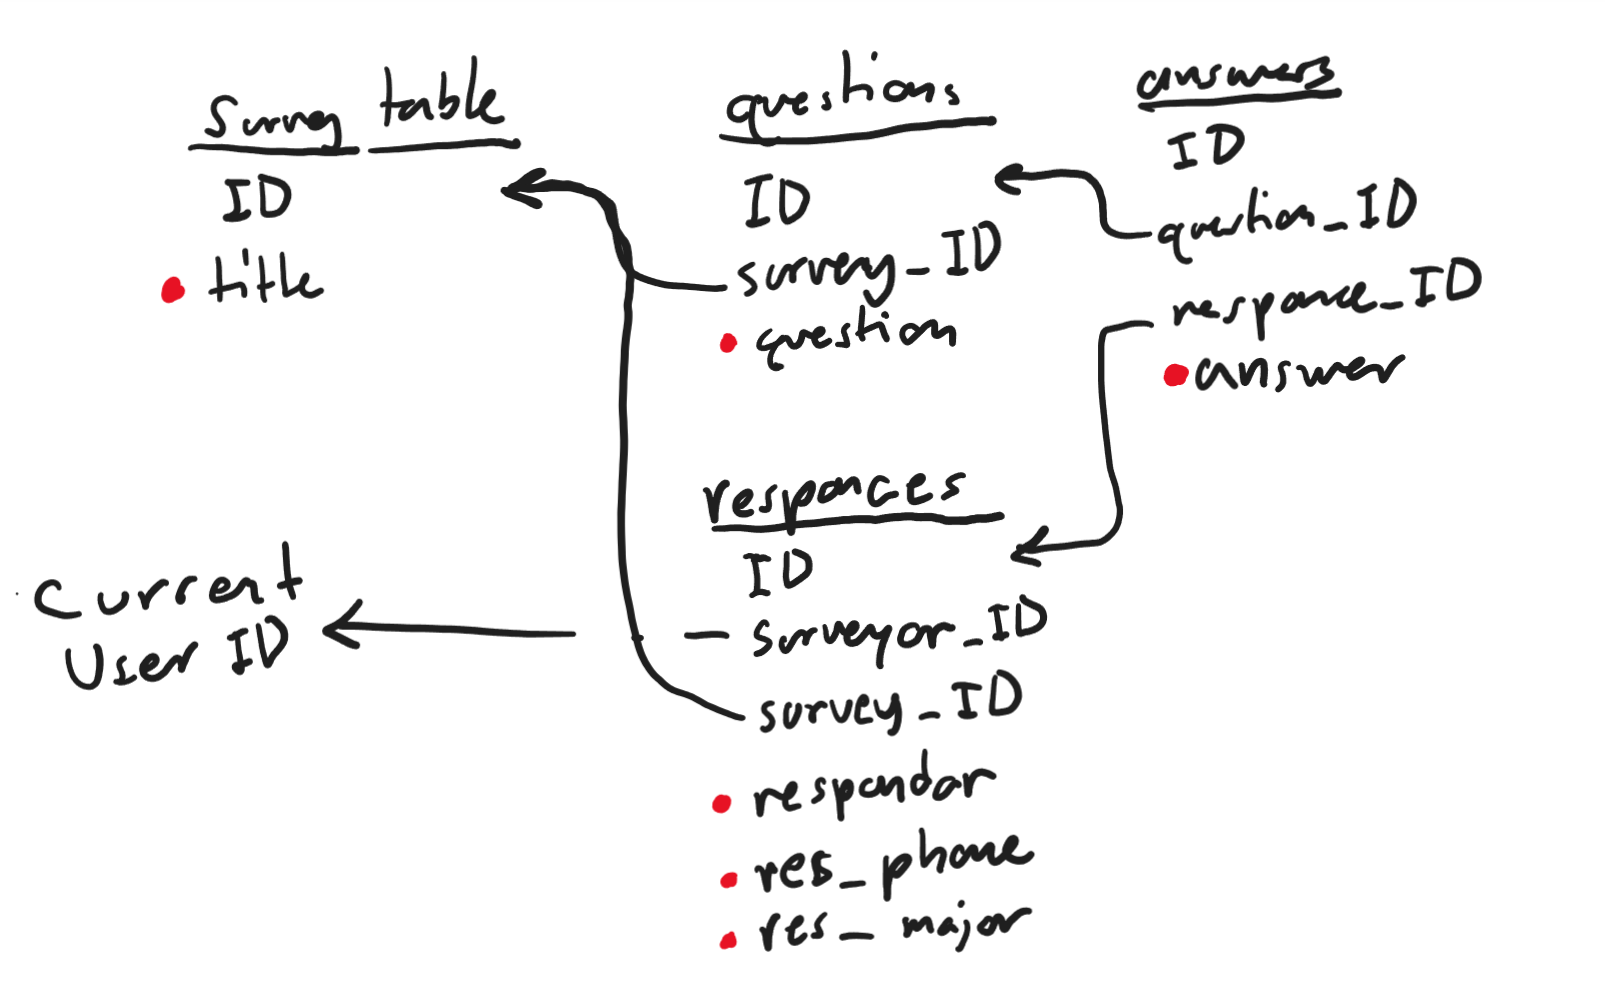 survey table
ID
title
questions
ID
survey_ID
question
answers
ID
question_ID
responce_ID
answer
responces
ID
surveyor_ID
survey_ID
respondor
res_phone
res_major
Current
User ID